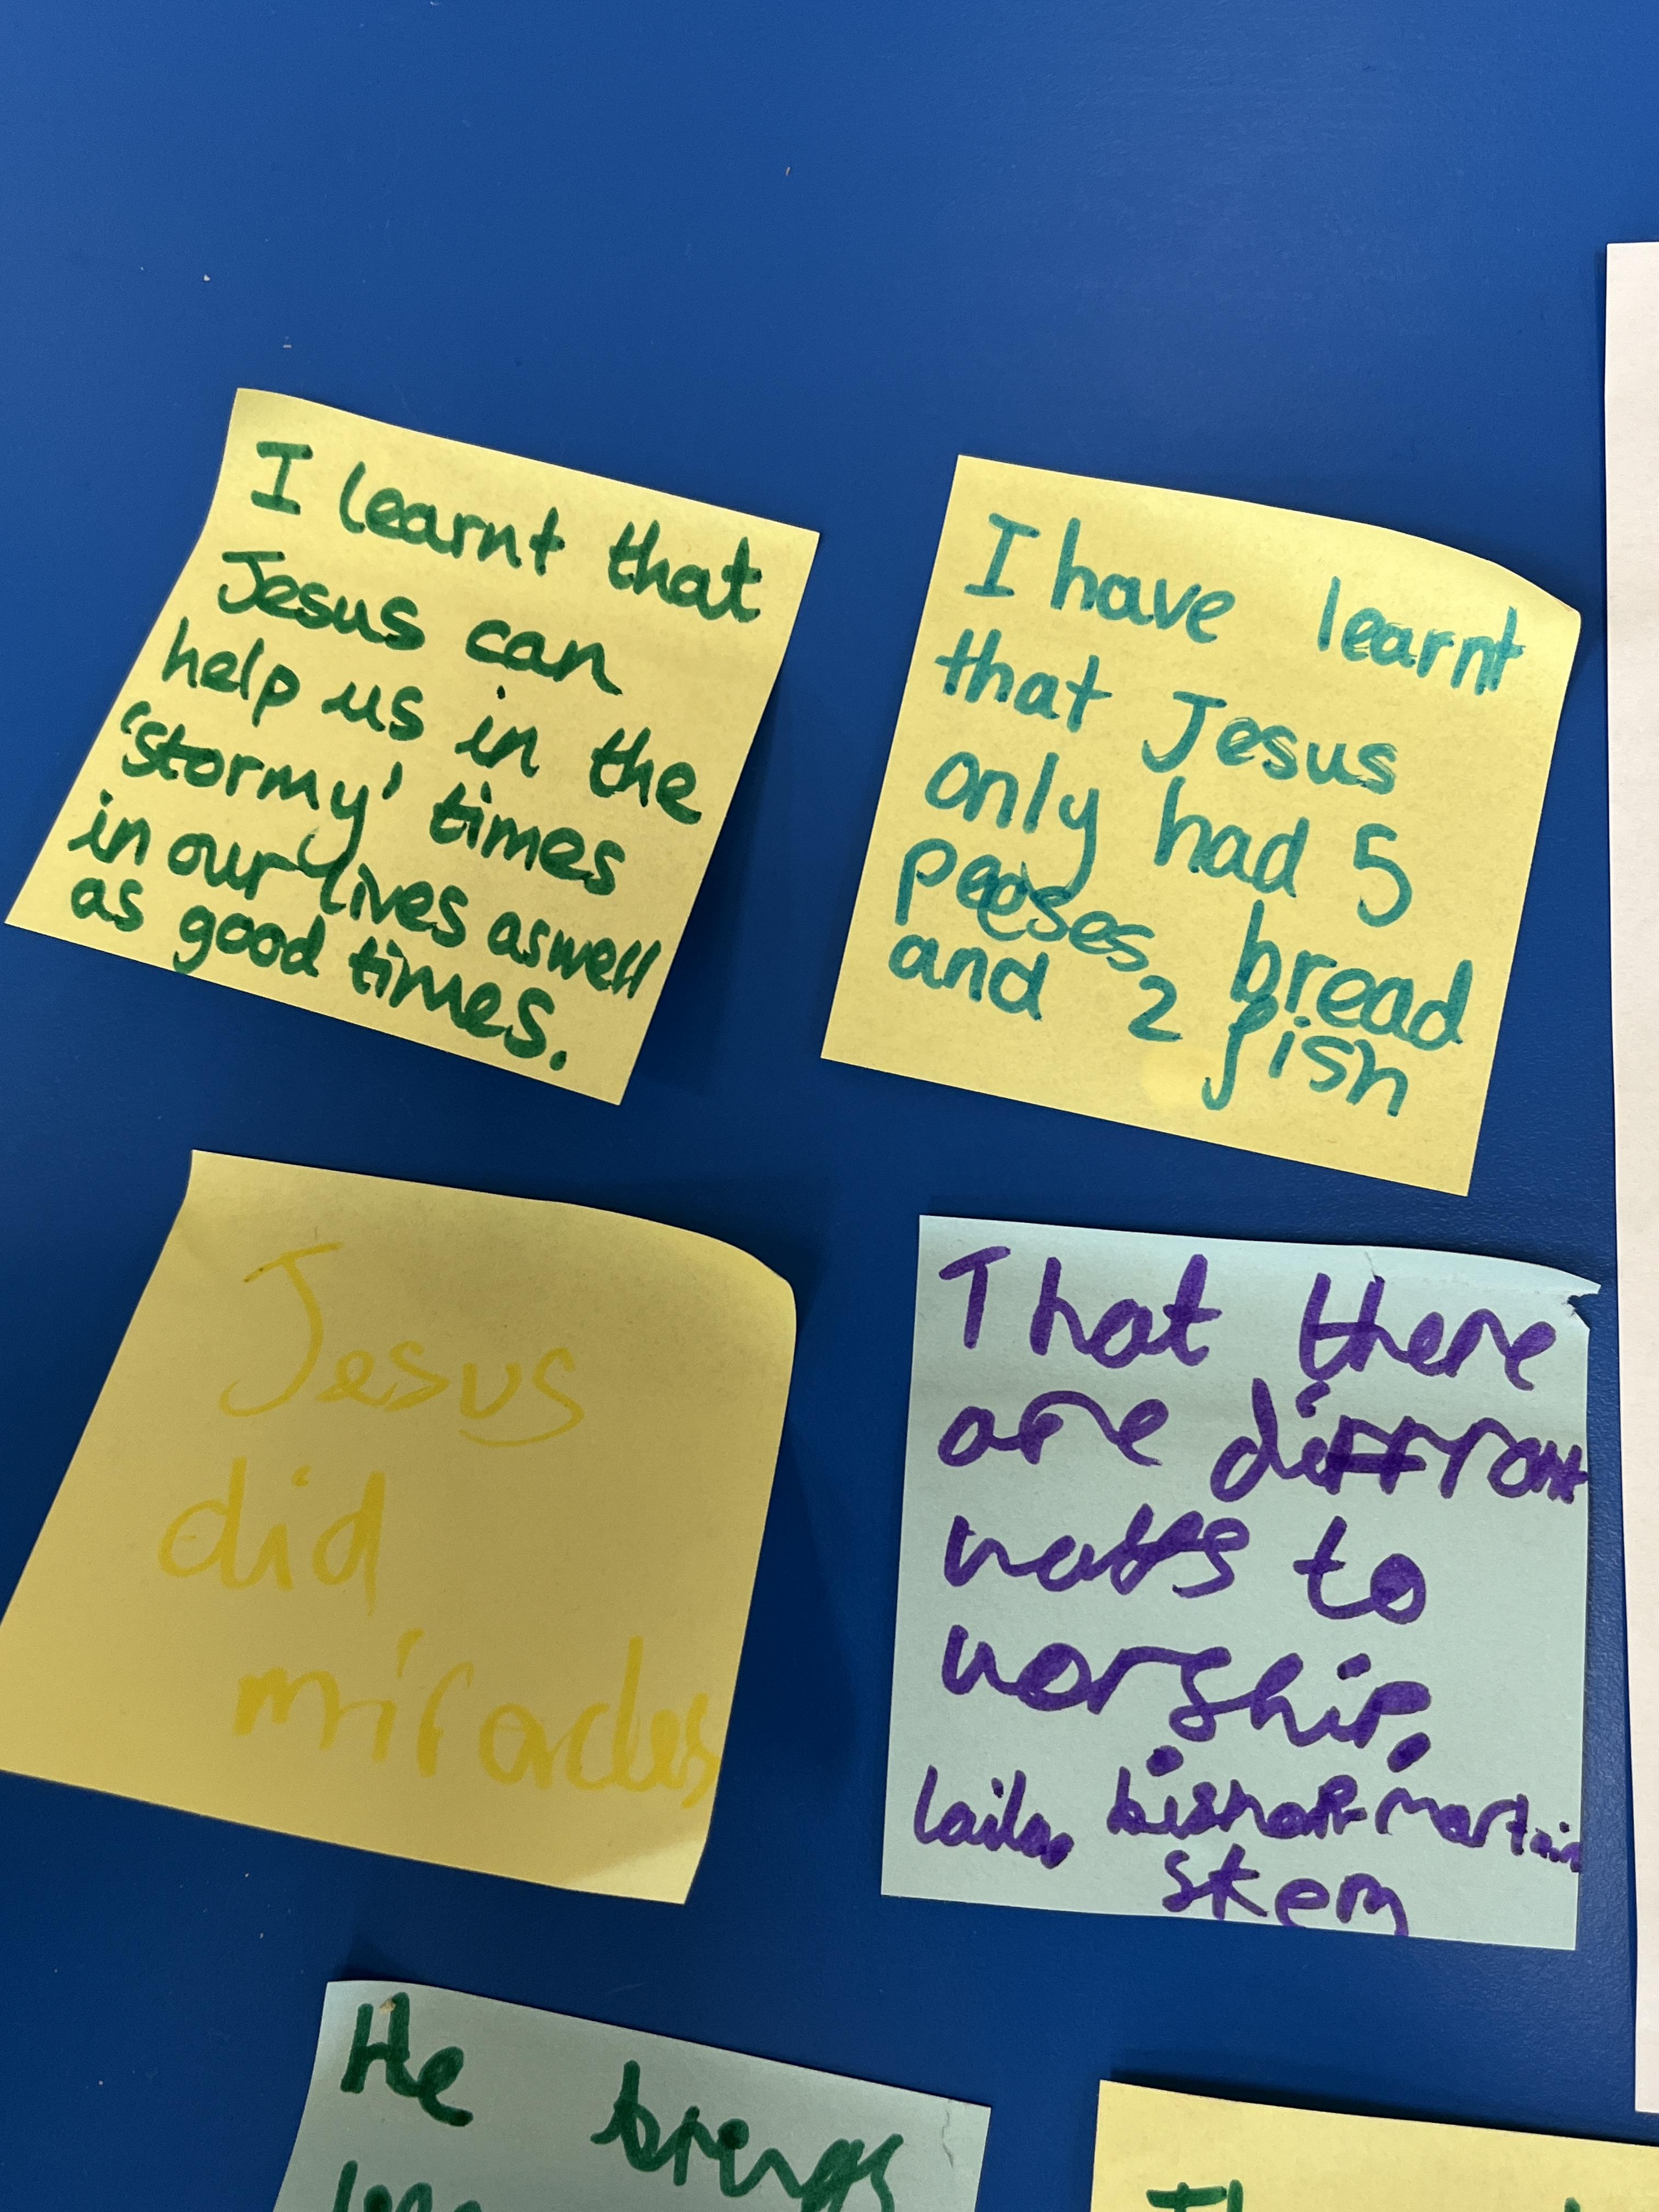 I learnt that
Jesus can
help us in the
'stormy' times
in our lives aswell
as good times.
I have learnt
that Jesus
only had 5
peeses bread
and 2 fish
Jesus
did
miracles
That there
are diffrant
ways to
worship.
Laila, bishop-martain
skem
He brings